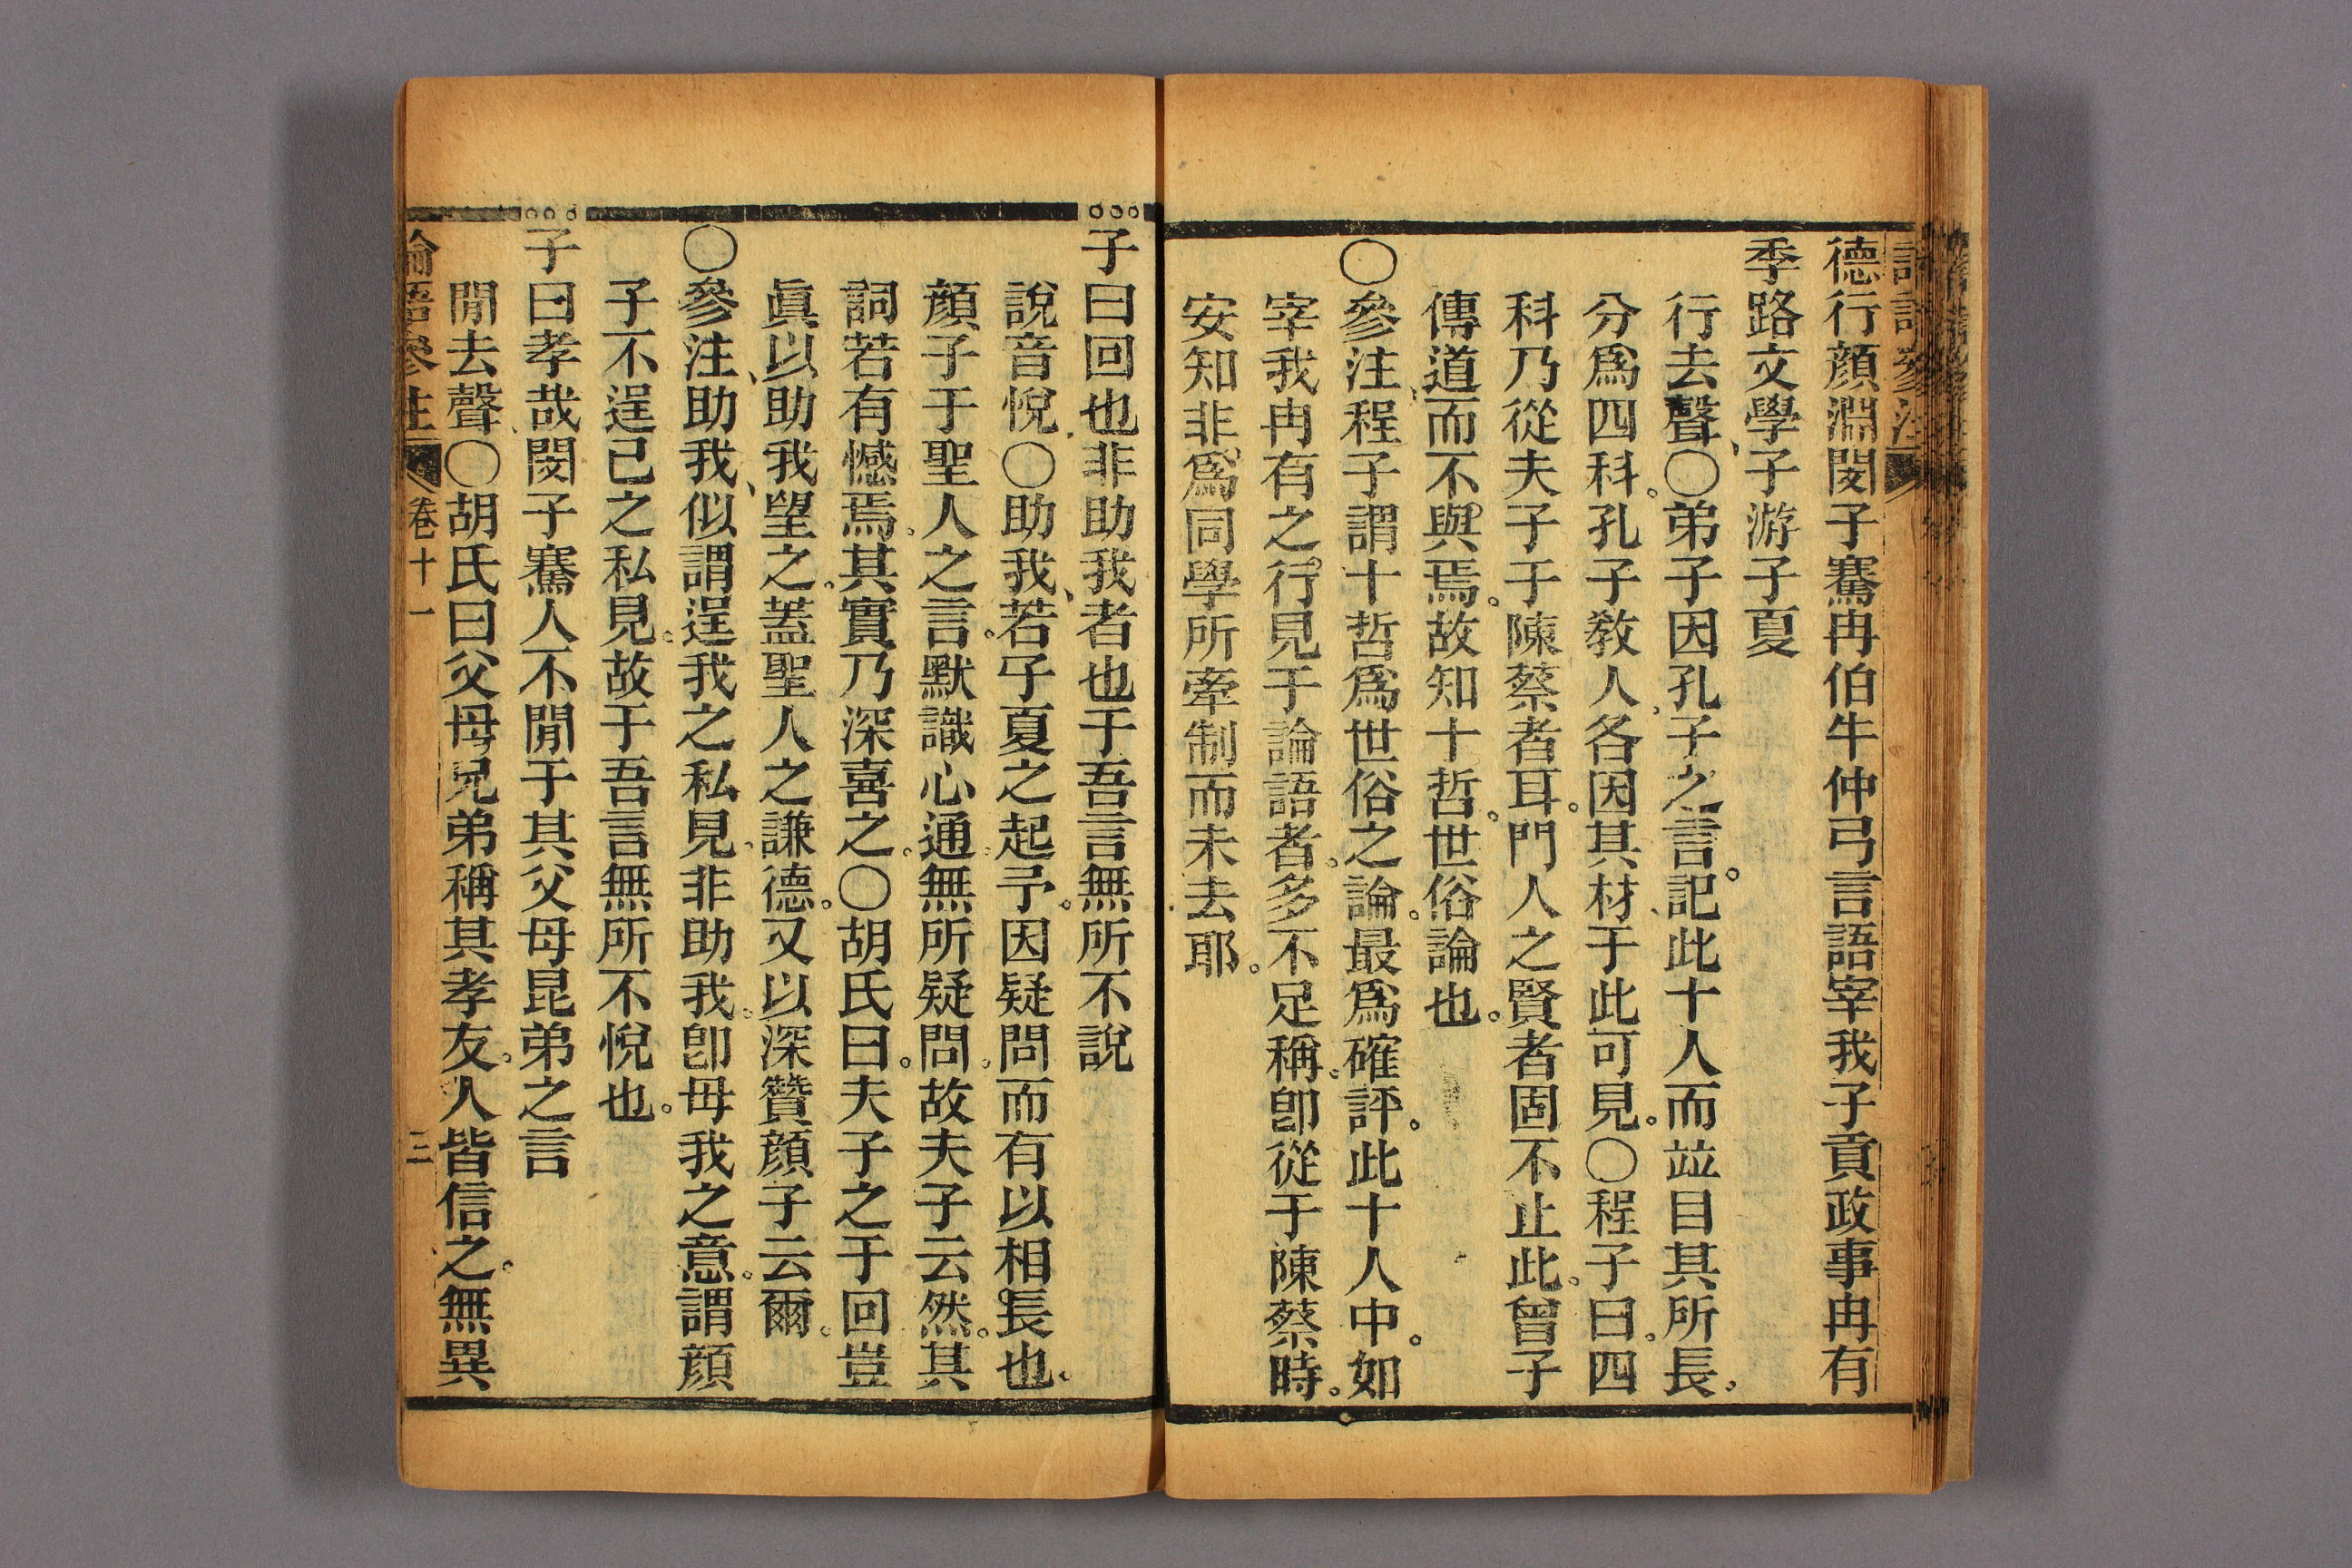 德行顏淵閔子騫冉伯牛仲弓言語宰我子貢政事冉有
季路文學子游子夏
行去聲〇弟子因孔子之言。記此十人而竝目其所長。
分爲四科。孔子敎人各因其材于此可見。〇程子曰。四
科乃從夫子于陳蔡者耳。門人之賢者固不止此。曾子
傳道而不與焉。故知十哲。世俗論也。
〇參注、程子謂十哲爲世俗之論。最爲確評。此十人中。如
宰我冉有之行見于論語者。多不足稱。卽從于陳蔡時。
安知非爲同學所牽制而未去耶。
子曰回也非助我者也于吾言無所不說
說音悅〇助我、若子夏之起予。因疑問而有以相長也。
顏子于聖人之言。默識心通。無所疑問。故夫子云然。其
詞若有憾焉。其實乃深喜之。〇胡氏曰。夫子之于回豈
眞以助我望之。蓋聖人之謙德。又以深贊顏子云爾。
〇參注、助我、似謂逞我之私見。非助我。卽毋我之意。謂顏
子不逞己之私見。故于吾言無所不悅也。
子曰孝哉閔子騫人不閒于其父母昆弟之言
閒去聲〇胡氏曰父母兄弟稱其孝友。人皆信之。無異
論語參注 卷十一 三